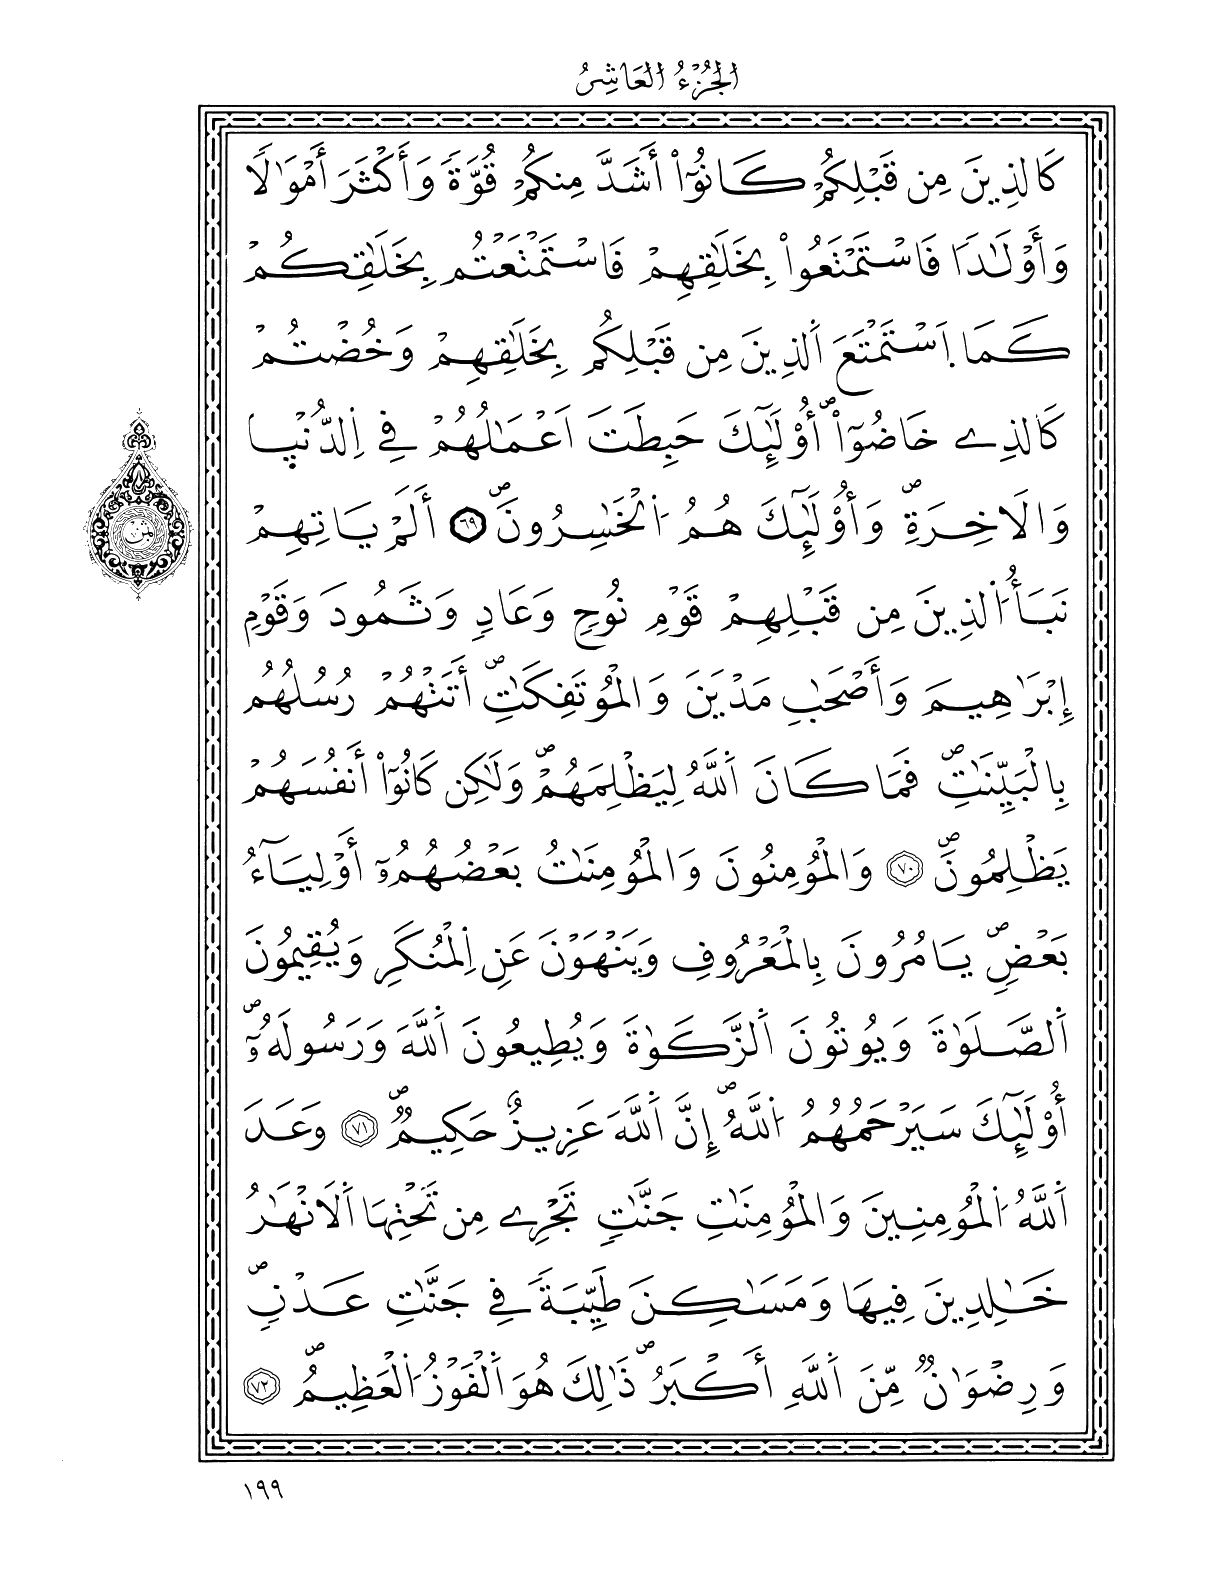 الجُزْءُ العَاشِرُ
كَالذِينَ مِن قَبْلِكُمْ كَانُوٓاْ أَشَدَّ مِنكُمْ قُوَّةٗ وَأَكْثَرَ أَمْوَٰلاٗ
وَأَوْلَٰداٗ فَاسْتَمْتَعُواْ بِخَلَٰقِهِمْ فَاسْتَمْتَعْتُم بِخَلَٰقِكُمْ
كَمَا اَسْتَمْتَعَ اَلذِينَ مِن قَبْلِكُم بِخَلَٰقِهِمْ وَخُضْتُمْ
كَالذِے خَاضُوٓاْۖ أُوْلَٰٓئِكَ حَبِطَتَ اَعْمَٰلُهُمْ فِے اِلدُّنْي۪ا
وَالَاخِرَةِۖ وَأُوْلَٰٓئِكَ هُمُ اُلْخَٰسِرُونَۖ ٦٩ أَلَمْ يَاتِهِمْ
نَبَأُ اُلذِينَ مِن قَبْلِهِمْ قَوْمِ نُوحٖ وَعَادٖ وَثَمُودَ وَقَوْمِ
إِبْرَٰهِيمَ وَأَصْحَٰبِ مَدْيَنَ وَالْمُوتَفِكَٰتِۖ أَتَتْهُمْ رُسُلُهُم
بِالْبَيِّنَٰتِۖ فَمَا كَانَ اَللَّهُ لِيَظْلِمَهُمْۖ وَلَٰكِن كَانُوٓاْ أَنفُسَهُمْ
يَظْلِمُونَۖ ٧٠ وَالْمُومِنُونَ وَالْمُومِنَٰتُ بَعْضُهُمُۥٓ أَوْلِيَآءُ
بَعْضٖۖ يَامُرُونَ بِالْمَعْرُوفِ وَيَنْهَوْنَ عَنِ اِلْمُنكَرِ وَيُقِيمُونَ
اَلصَّلَوٰةَ وَيُوتُونَ اَلزَّكَوٰةَ وَيُطِيعُونَ اَللَّهَ وَرَسُولَهُۥٓۖ
أُوْلَٰٓئِكَ سَيَرْحَمُهُمُ اُللَّهُۖ إِنَّ اَللَّهَ عَزِيزٌ حَكِيمٞۖ ٧١ وَعَدَ
اَللَّهُ اُلْمُومِنِينَ وَالْمُومِنَٰتِ جَنَّٰتٖ تَجْرِے مِن تَحْتِهَا اَلَانْهَٰرُ
خَٰلِدِينَ فِيهَا وَمَسَٰكِنَ طَيِّبَةٗ فِے جَنَّٰتِ عَدْنٖۖ
وَرِضْوَٰنٞ مِّنَ اَللَّهِ أَكْبَرُۖ ذَٰلِكَ هُوَ اَلْفَوْزُ اُلْعَظِيمُۖ ٧٢
ثمن
١٩٩